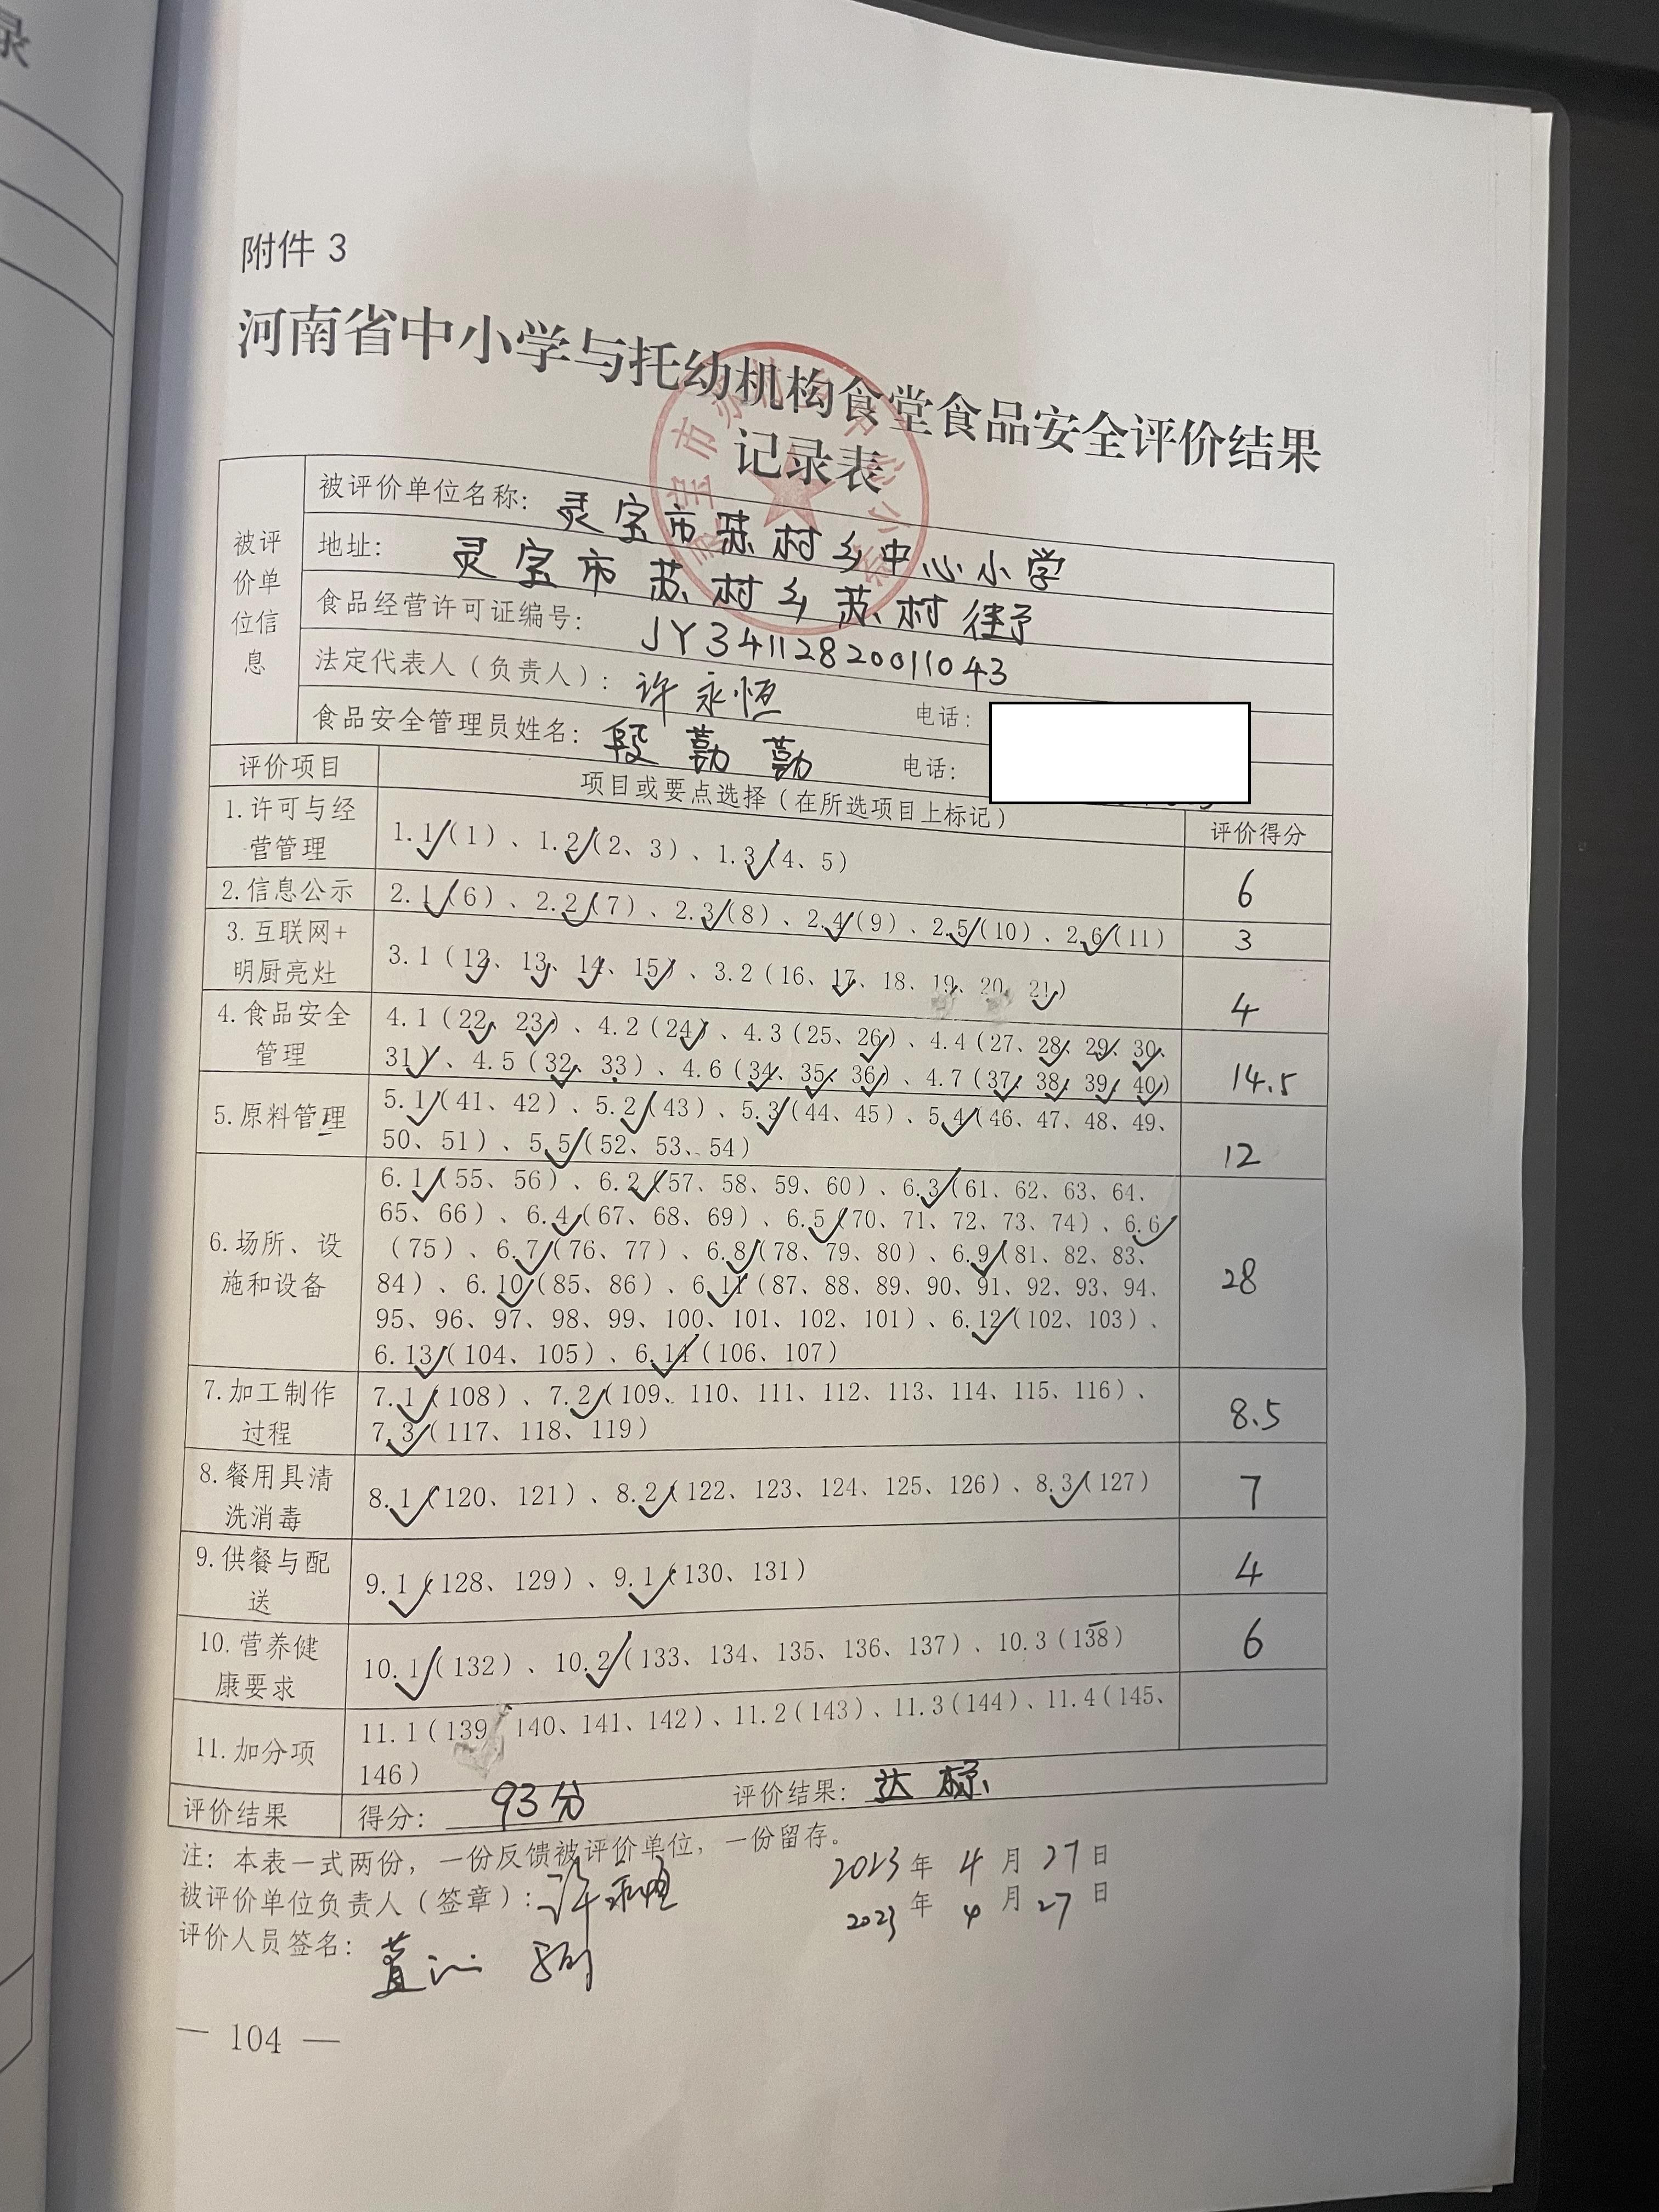 录
附件 3
河南省中小学与托幼机构食堂食品安全评价结果
记录表
被评价单位信息
被评价单位名称: 灵宝市苏村乡中心小学
地址: 灵宝市苏村乡苏村街予
食品经营许可证编号: JY34112820011043
法定代表人(负责人): 许永恒 电话:
食品安全管理员姓名: 段勤勤 电话:
评价项目 项目或要点选择(在所选项目上标记) 评价得分
1.许可与经营管理
1.1✓(1)、1.2✓(2、3)、1.3✓(4、5)
6
2.信息公示
2.1✓(6)、2.2✓(7)、2.3✓(8)、2.4✓(9)、2.5✓(10)、2.6✓(11)
3
3.互联网+
明厨亮灶
3.1(12✓、13✓、14✓、15✓)、3.2(16、17✓、18、19、20、21✓)
4
4.食品安全
管理
4.1(22✓、23✓)、4.2(24✓)、4.3(25、26✓)、4.4(27、28✓、29✓、30✓、
31✓)、4.5(32✓、33)、4.6(34✓、35✓、36✓)、4.7(37✓、38✓、39✓、40✓)
14.5
5.原料管理
5.1✓(41、42)、5.2✓(43)、5.3✓(44、45)、5.4✓(46、47、48、49、
50、51)、5.5✓(52、53、54)
12
6.场所、设
施和设备
6.1✓(55、56)、6.2✓(57、58、59、60)、6.3✓(61、62、63、64、
65、66)、6.4✓(67、68、69)、6.5✓(70、71、72、73、74)、6.6✓
(75)、6.7✓(76、77)、6.8✓(78、79、80)、6.9✓(81、82、83、
84)、6.10✓(85、86)、6.11✓(87、88、89、90、91、92、93、94、
95、96、97、98、99、100、101、102、101)、6.12✓(102、103)、
6.13✓(104、105)、6.14✓(106、107)
28
7.加工制作
过程
7.1✓(108)、7.2✓(109、110、111、112、113、114、115、116)、
7.3✓(117、118、119)
8.5
8.餐用具清
洗消毒
8.1✓(120、121)、8.2✓(122、123、124、125、126)、8.3✓(127)
7
9.供餐与配
送
9.1✓(128、129)、9.1✓(130、131)
4
10.营养健
康要求
10.1✓(132)、10.2✓(133、134、135、136、137)、10.3(138)
6
11.加分项
11.1(139、140、141、142)、11.2(143)、11.3(144)、11.4(145、
146)
评价结果 得分: 93分 评价结果: 达标
注: 本表一式两份, 一份反馈被评价单位, 一份留存。
被评价单位负责人(签章): 许永恒 2023年4月27日
评价人员签名: 2023年4月27日
— 104 —